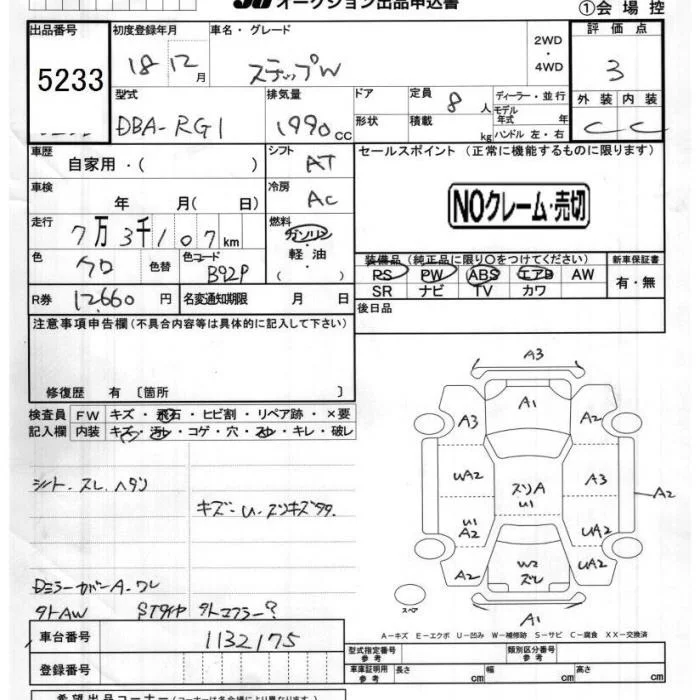 JU オークション出品申込書
①会場控
出品番号
5233
初度登録年月
18 12月
車名・グレード
ステップW
2WD
・
4WD
評価点
3
外装 内装
C C
型式
DBA-RG1
排気量
1990cc
ドア
形状
定員 8人
積載 kg
ディーラー・並行
モデル年式 年
ハンドル 左・右
車歴
自家用・( )
シフト
AT
セールスポイント (正常に機能するものに限ります)
NOクレーム・売切
車検
年 月( 日)
冷房
AC
走行
7万3千107km
燃料
ガソリン
軽・油
( )
色
クロ
色替
色コード
B92P
装備品(純正品に限り○をつけてください)
PS PW ABS エアB AW
SR ナビ TV カワ
新車保証書
有・無
R券
12,660円
名変通知期限 月 日
後日品
注意事項申告欄(不具合内容等は具体的に記入して下さい)
修復歴 有 〔箇所 〕
検査員
記入欄
FW キズ・飛石・ヒビ割・リペア跡・×要
内装 キズ・汚レ・コゲ・穴・スレ・キレ・破レ
シート.スレ.ヘタリ
キズ-U-スリキズ
Dミラーカバー A-ワレ
タトAW STタイヤ タトマフラー?
A3
A1
A3 A2
UA2 スリA U1 A3
A2
U1 A2 UA2
A2 W2 ズレ UA2
スペア
A1
A-キズ E-エクボ U-凹み W-補修跡 S-サビ C-腐食 XX-交換済
車台番号
1132175
登録番号
型式指定番号
参考
類別区分番号
参考
車庫証明用
参考
長さ cm 幅 cm 高さ cm
希望出品コーナー